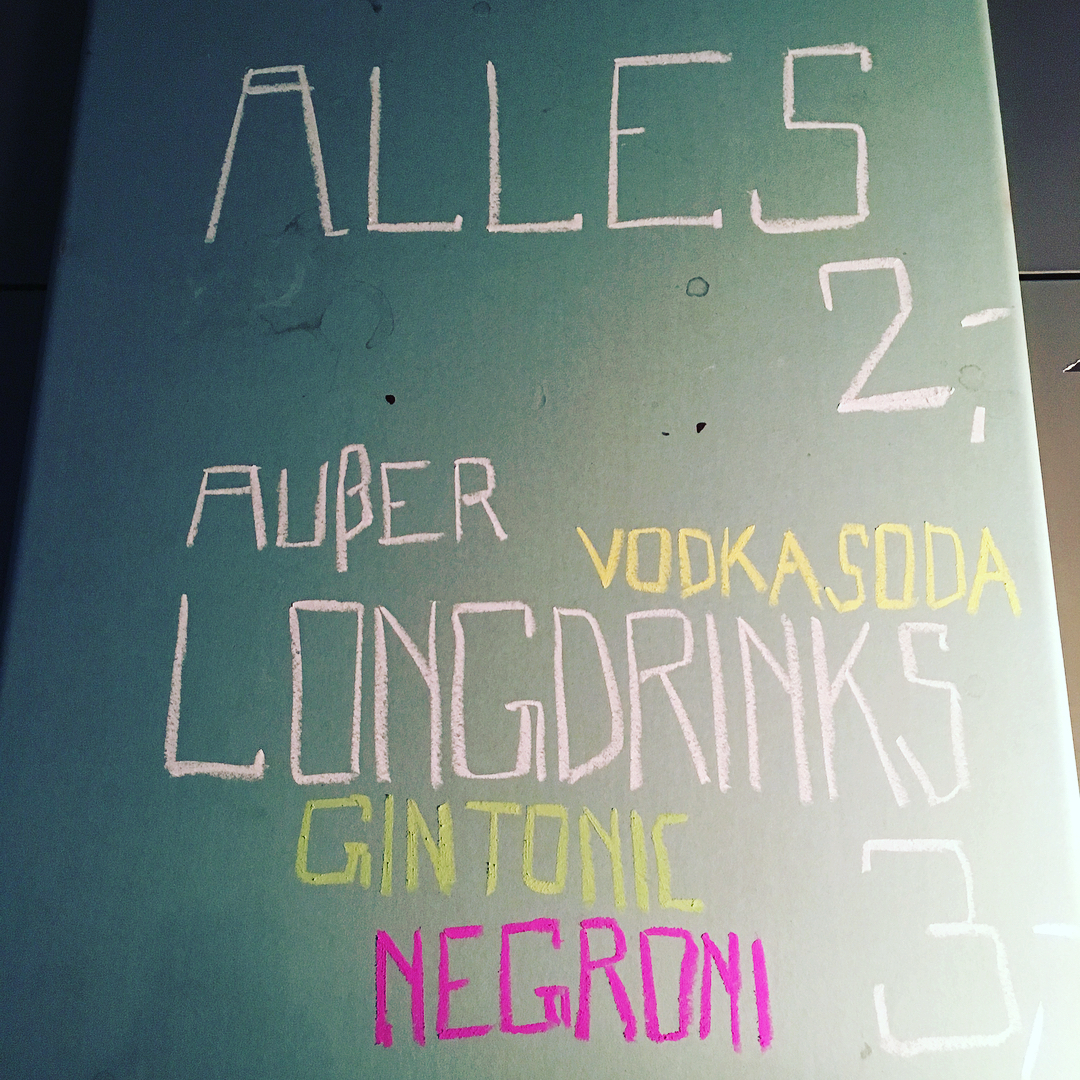 ALLES
2,-
AUßER
VODKA SODA
LONGDRINKS
GIN TONIC
3,-
NEGRONI